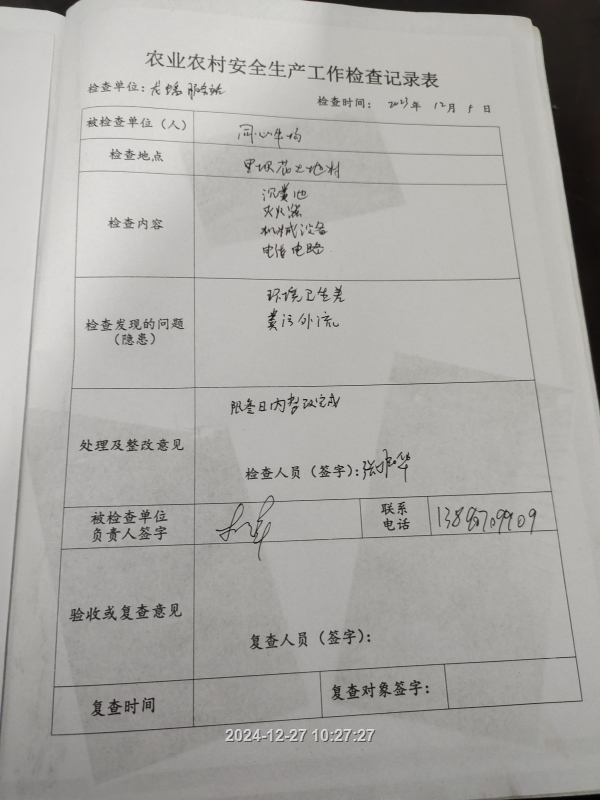 农业农村安全生产工作检查记录表
检查单位：
检查时间： 2023年 12月 9日
被检查单位（人） 同心牛场
检查地点 土地村
检查内容
沉粪池
灭火器
机械设备
电传电路
检查发现的问题
（隐患）
环境卫生差
粪污外流
处理及整改意见
限叁日内整改完成
检查人员（签字）：
被检查单位
负责人签字
联系
电话
验收或复查意见
复查人员（签字）：
复查时间
复查对象签字：
2024-12-27 10:27:27